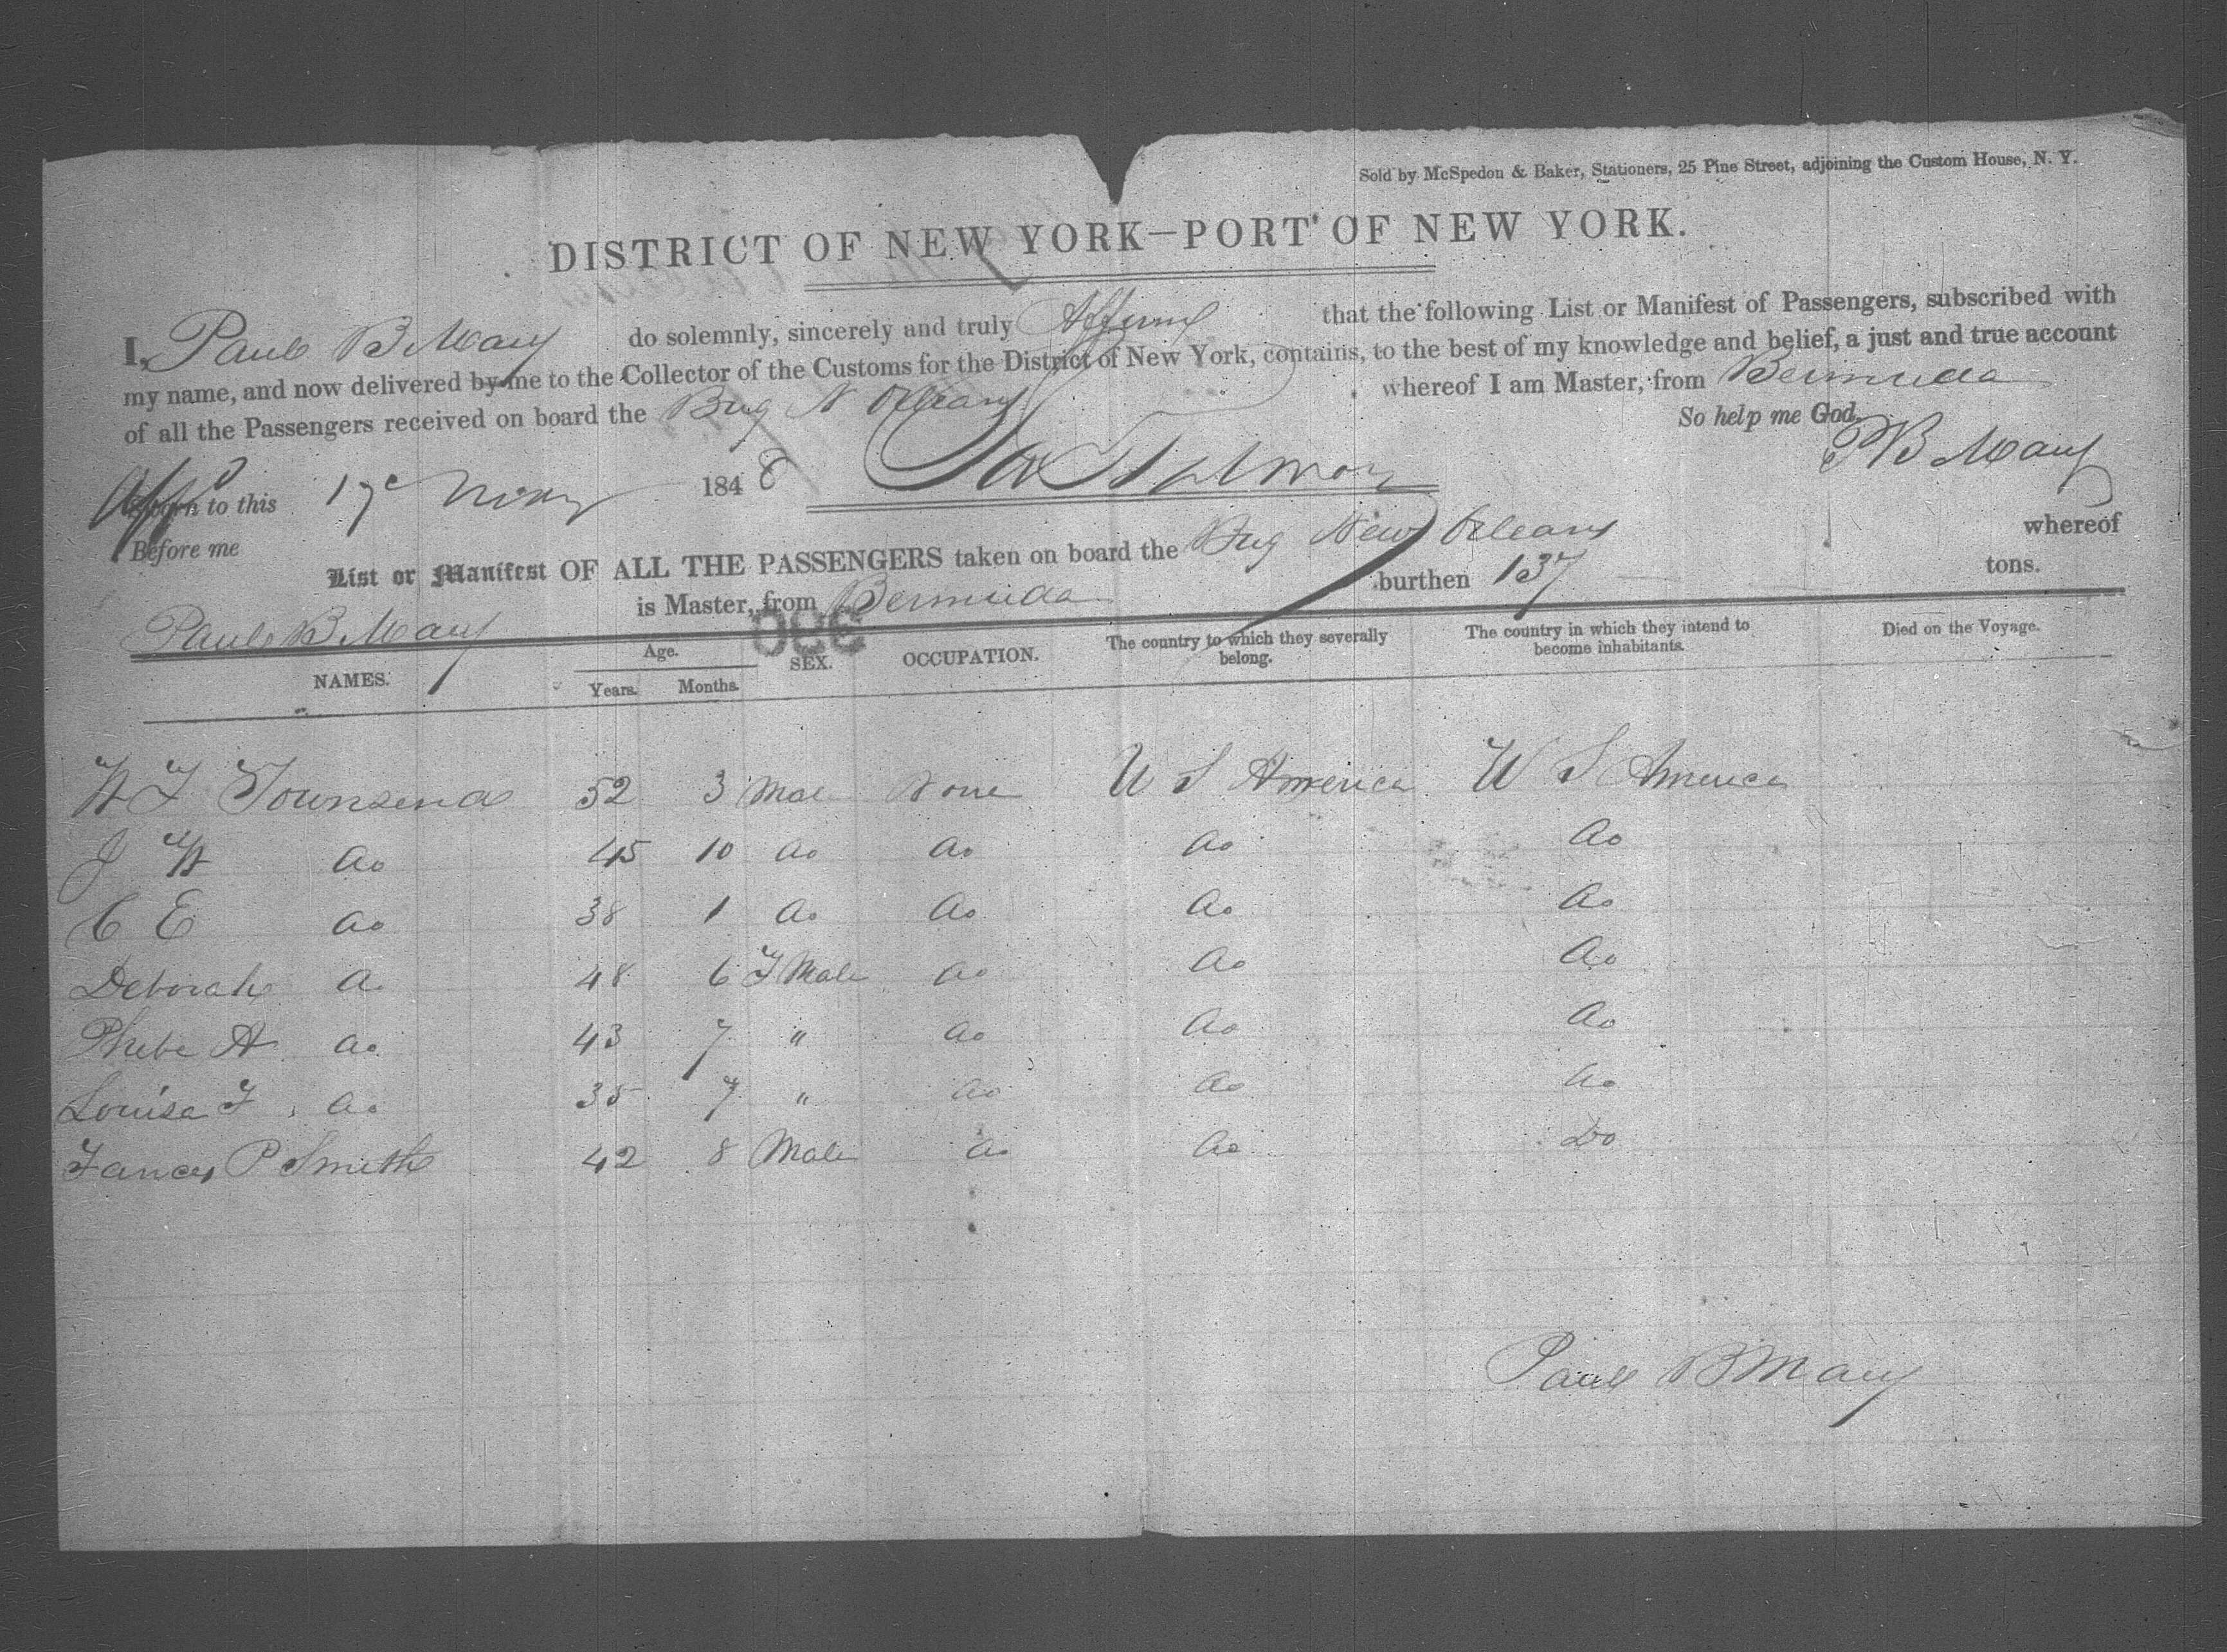 Sold by McSpedon & Baker, Stationers, 25 Pine Street, adjoining the Custom House, N. Y.
DISTRICT OF NEW YORK—PORT OF NEW YORK.
I, Paul B Macy do solemnly, sincerely and truly Affirm that the following List or Manifest of Passengers, subscribed with
my name, and now delivered by me to the Collector of the Customs for the District of New York, contains, to the best of my knowledge and belief, a just and true account
of all the Passengers received on board the Brig N Orleans whereof I am Master, from Bermuda
So help me God.
P B Macy
Affd Sworn to this 17 1848
Before me
List or Manifest OF ALL THE PASSENGERS taken on board the Brig New Orleans whereof
Paul B Macy is Master, from Bermuda burthen 137 tons.
NAMES. Age. Years. Months. SEX. OCCUPATION. The country to which they severally belong. The country in which they intend to become inhabitants. Died on the Voyage.
Townsend 52 3 Male None U S America U S America
J do 45 10 do do do do
C E do 38 1 do do do do
Deborah do 48 6 F Male do do do
Phebe A do 43 7 " do do do
Louisa F do 35 7 " do do do
Frances P Smith 42 8 Male do do Do
Paul B Macy